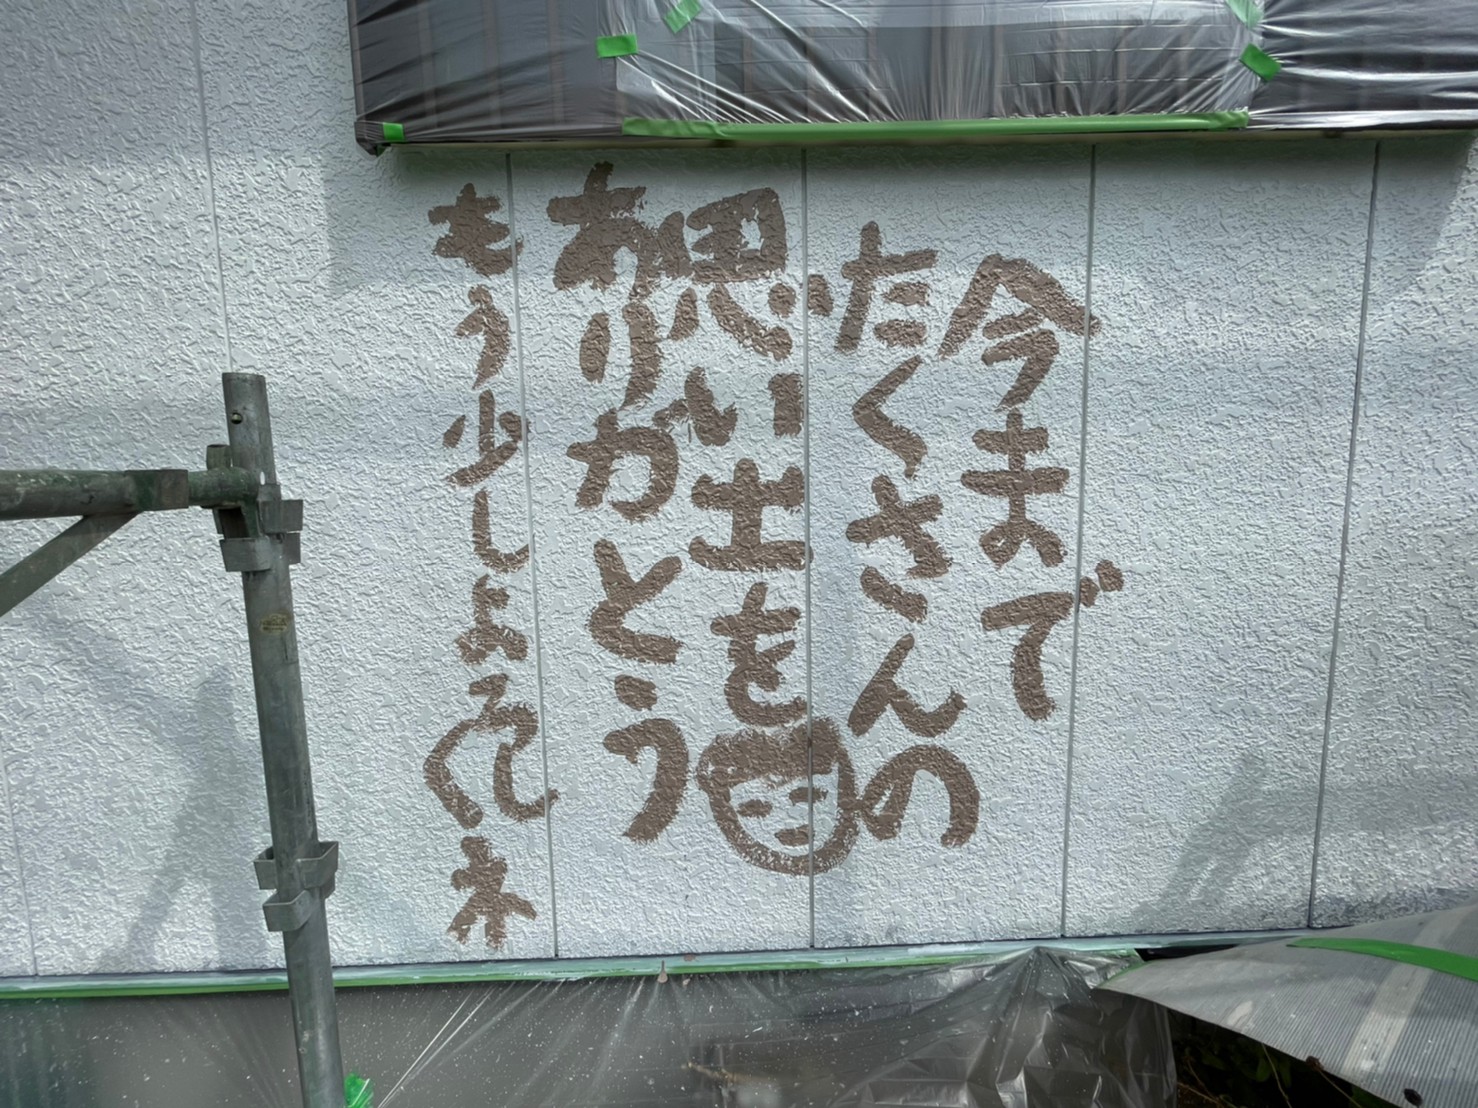 今まで
たくさんの
思い出を
ありがとう
もう少しよろしくネ